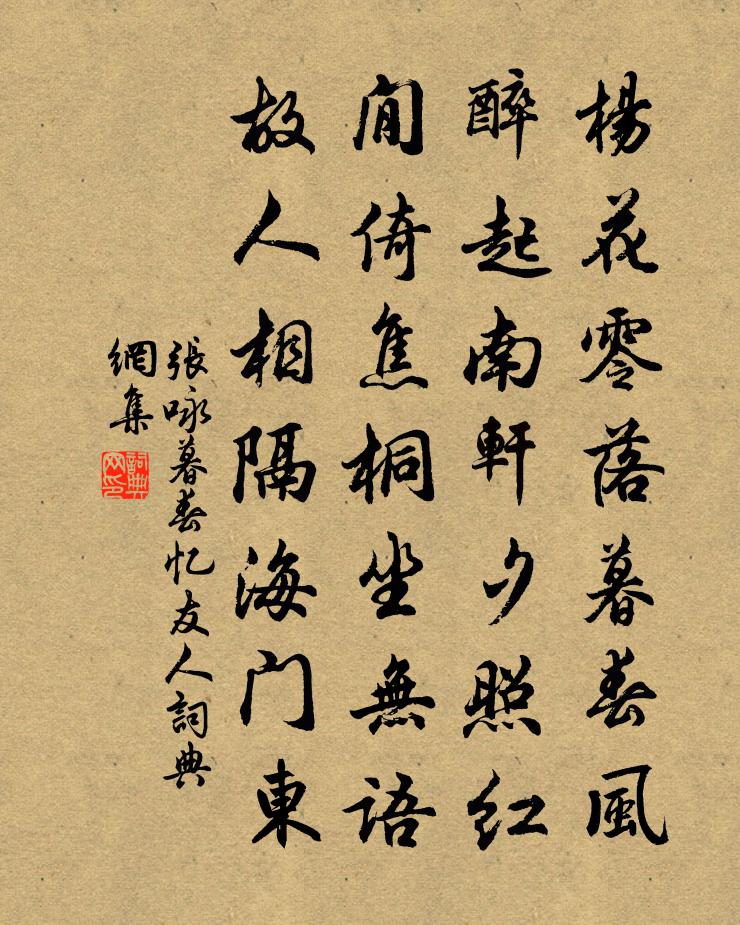 楊花零落暮春風
醉起南軒夕照紅
閒倚焦桐坐無語
故人相隔海门東
張咏暮春忆友人詞典
網集
詞典
网印